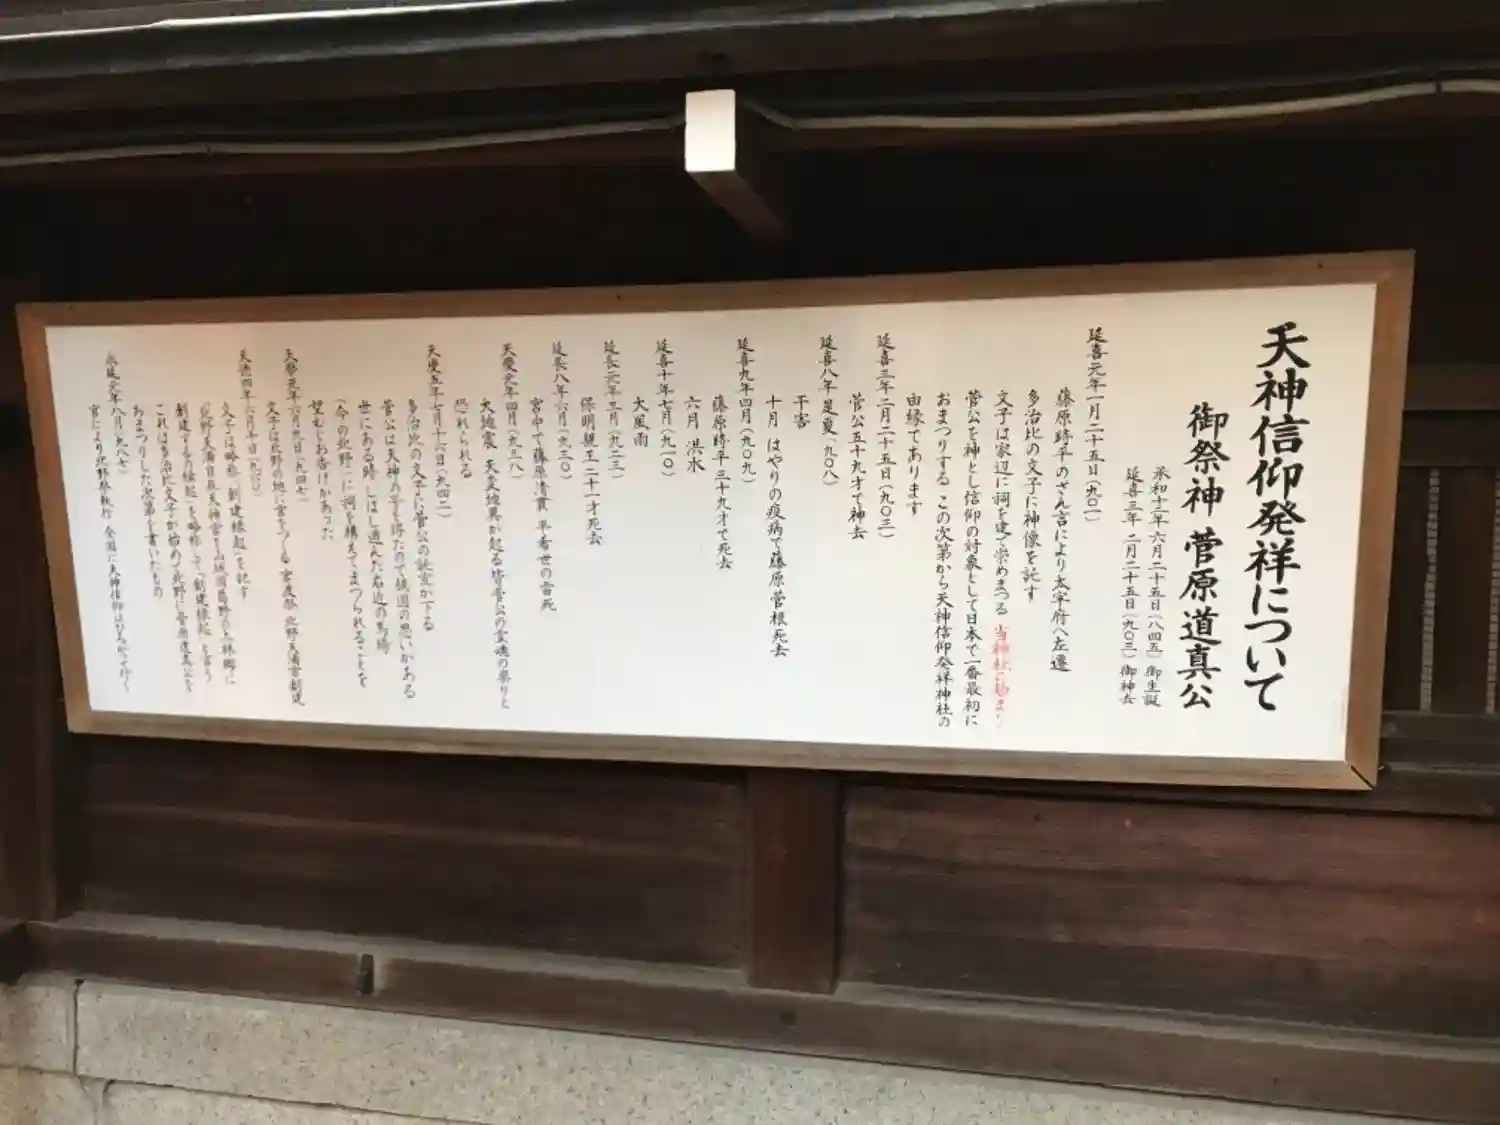 天神信仰発祥について
御祭神 菅原道真公
承和十二年六月二十五日(八四五)御生誕
延喜三年二月二十五日(九〇三)御神去
延喜元年一月二十五日(九〇一)
藤原時平のざん言により太宰府へ左遷
多治比の文子に神像を託す
文子は家辺に祠を建て崇めまつる 当神社に始まり
菅公を神とし信仰の対象として日本で一番最初に
おまつりする この次第から天神信仰発祥神社の
由縁であります
延喜三年二月二十五日(九〇三)
菅公五十九才で神去
延喜八年是夏(九〇八)
干害
十月 はやりの疫病で藤原菅根死去
延喜九年四月(九〇九)
藤原時平三十九才で死去
六月 洪水
延喜十年七月(九一〇)
大風雨
延長元年三月(九二三)
保明親王二十一才死去
延長八年六月(九三〇)
宮中で藤原清貫 平希世の雷死
天慶元年四月(九三八)
大地震 天変地異が起る 皆菅公の霊魂の祟りと
恐れられる
天慶五年七月十六日(九四二)
多治比の文子に菅公の託宣が下る
菅公は天神の号を得たので鎮国の思いがある
世にある時しばし遊んだ右近の馬場
「今の北野」に祠を構えてまつられることを
望むとお告げがあった
天暦元年六月九日(九四七)
文子は北野の地に宮をつくる 宮渡祭 北野天満宮創建
天徳四年六月十日(九六〇)
文子は略称「創建縁起」を記す
「北野天満自在天神宮を山城国葛野の上林郷に
創建するの縁起」を略称して「創建縁起」と言う
これは多治比文子が始めて北野に菅原道真公を
おまつりした次第を書いたもの
永延元年八月(九八七)
官により北野祭執行 全国に天神信仰はひろがって行く